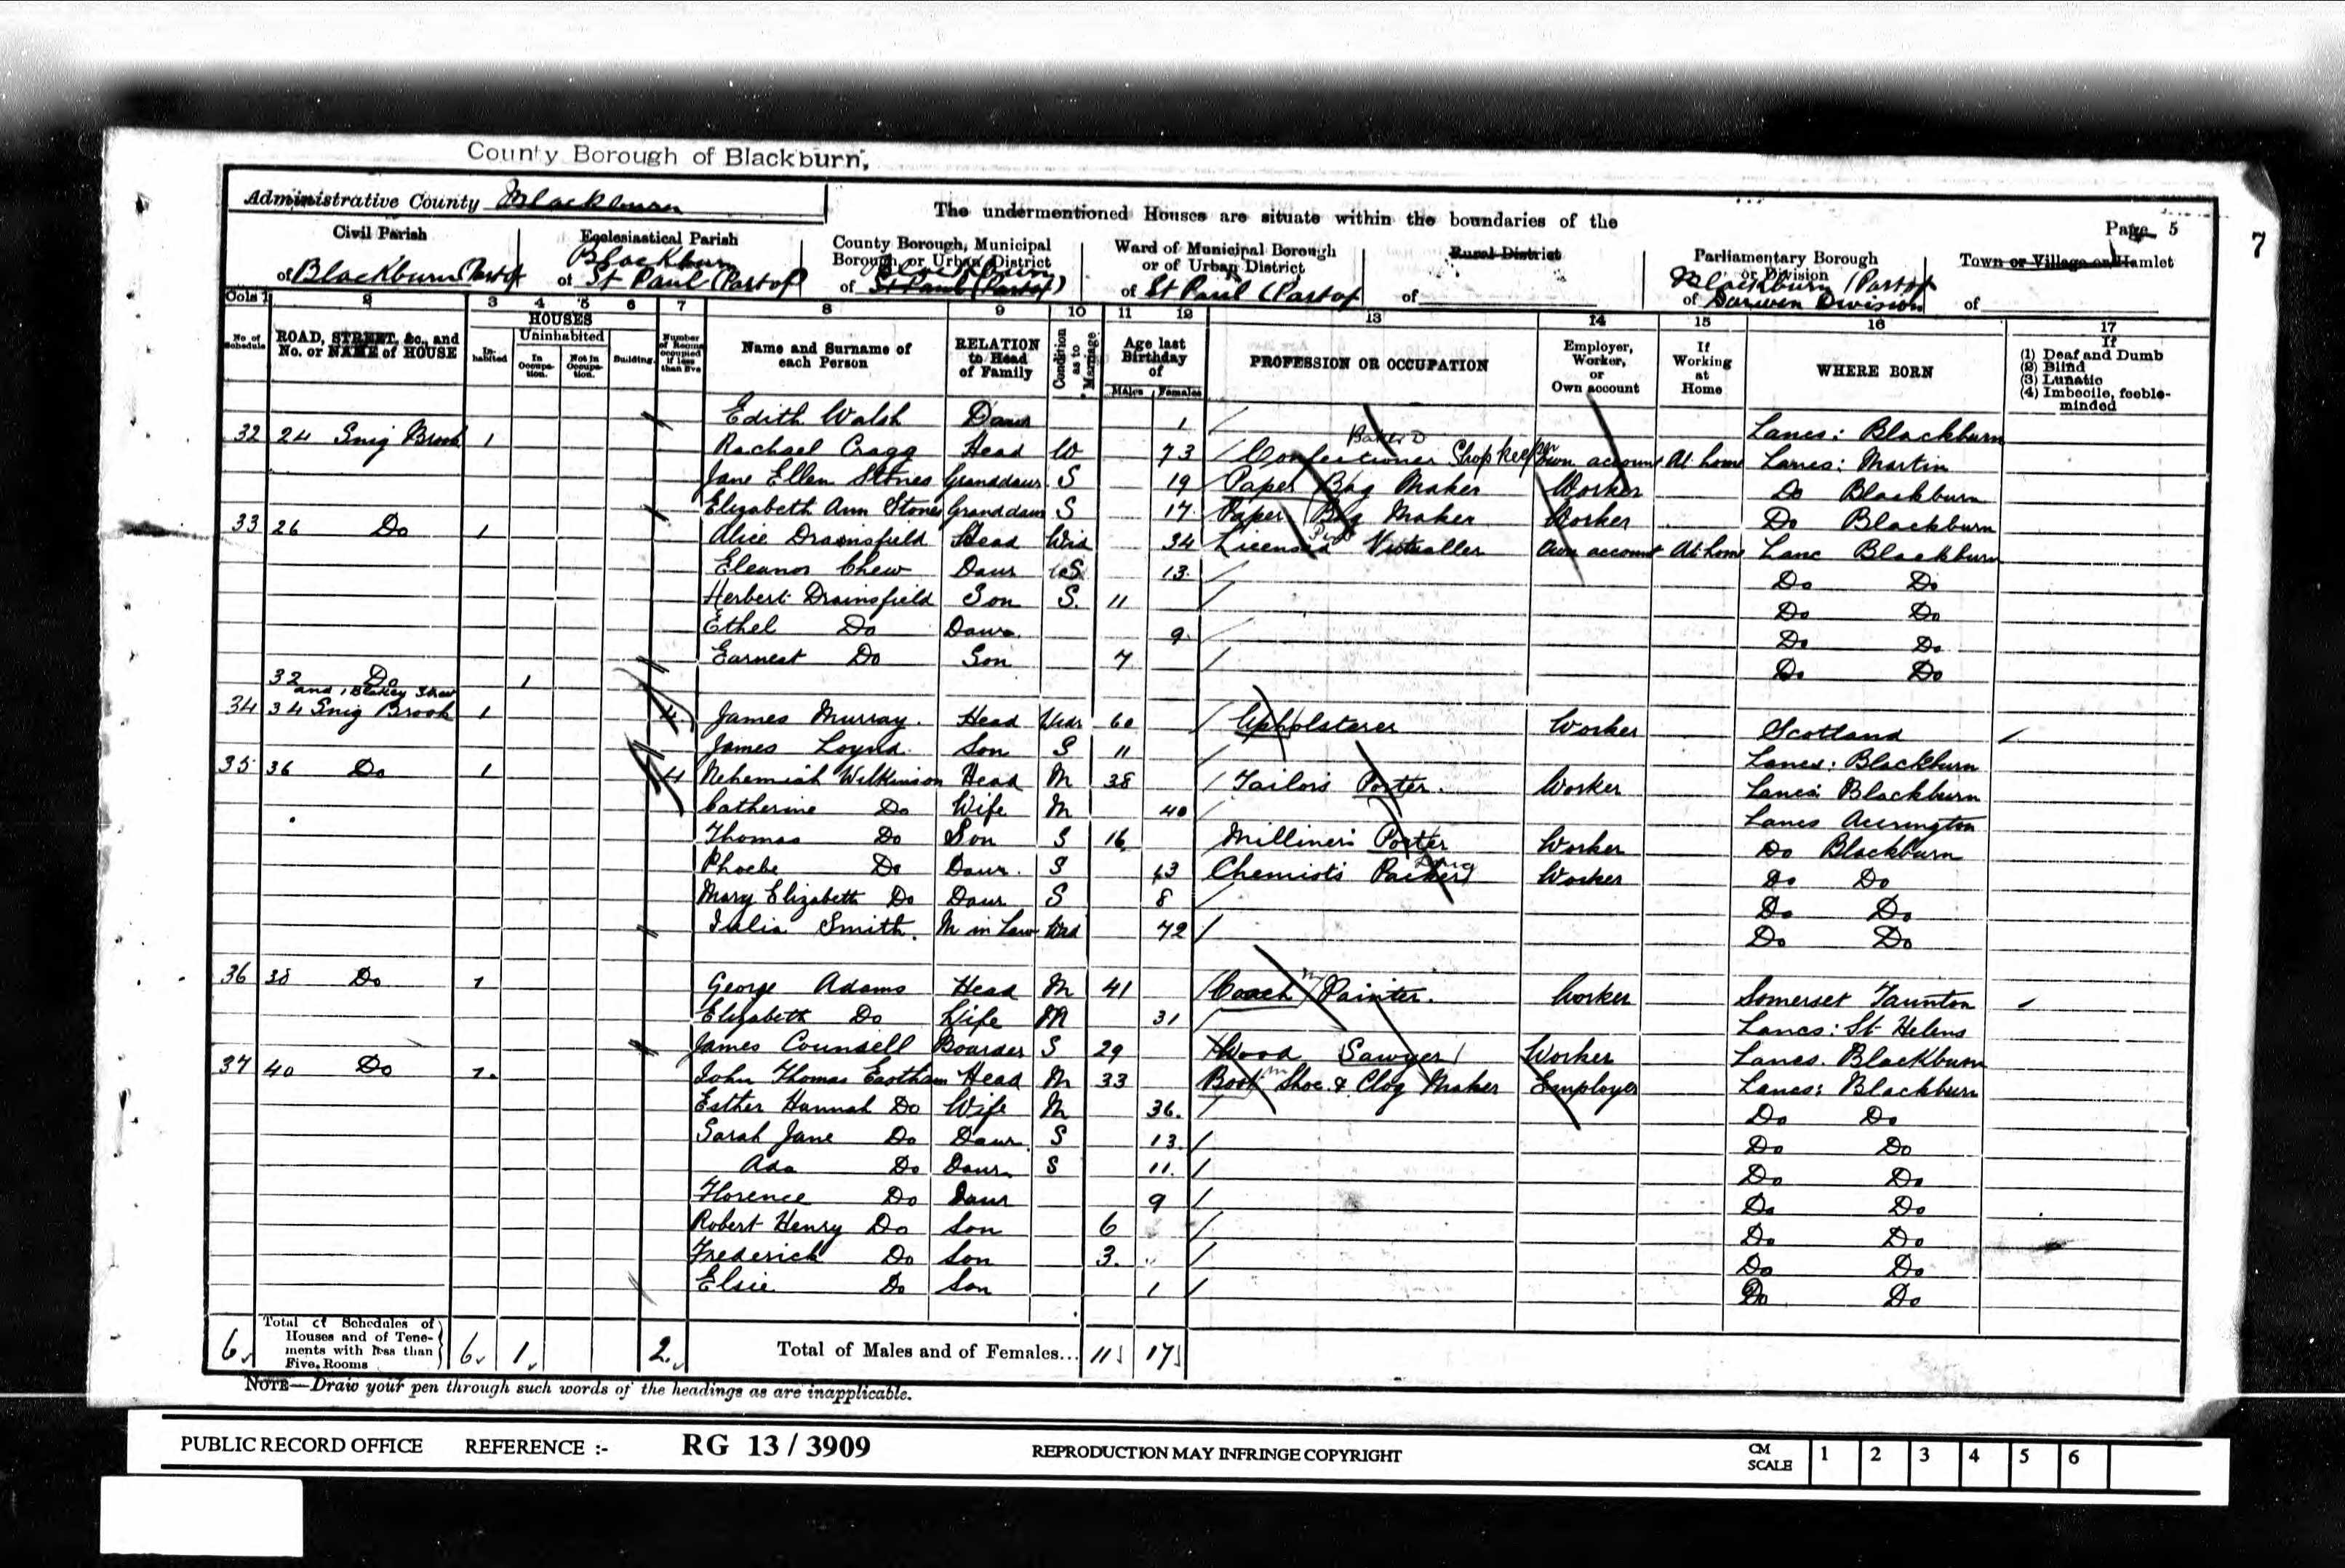 County Borough of Blackburn,
Administrative County Blackburn
The undermentioned Houses are situate within the boundaries of the
Page 5
7
Civil Parish
of Blackburn (Part of
Ecclesiastical Parish
Blackburn
of St Paul (Part of)
County Borough, Municipal
Borough, or Urban District
Blackburn
of St Paul (Part of)
Ward of Municipal Borough
or of Urban District
of St Paul (Part of
Rural District
of
Parliamentary Borough
or Division
Blackburn (Part of
of Darwen Division
Town or Village or Hamlet
of
Cols 1 2 3 4 5 6 7 8 9 10 11 12 13 14 15 16 17
No of Schedule
ROAD, STREET, &c., and No. or NAME of HOUSE
HOUSES
In-habited
Uninhabited
In Occupa-tion.
Not in Occupa-tion.
Building.
Number of Rooms occupied if less than five
Name and Surname of each Person
RELATION to Head of Family
Condition as to Marriage
Age last Birthday of
Males Females
PROFESSION OR OCCUPATION
Employer, Worker, or Own account
If Working at Home
WHERE BORN
If
(1) Deaf and Dumb
(2) Blind
(3) Lunatic
(4) Imbecile, feeble-minded
Edith Walsh Daur 1 Lancs: Blackburn
32 24 Snig Brook 1 Rachael Cragg Head W 73 Confectioner Shopkeeper Own account At home Lancs: Martin
Jane Ellen Stones Granddaur S 19 Paper Bag Maker Worker Do Blackburn
Elizabeth Ann Stones Granddaur S 17 Paper Bag Maker Worker Do Blackburn
33 26 Do 1 Alice Dransfield Head Wid 34 Licensed Victualler Own account At home Lanc Blackburn
Eleanor Chew Daur S 13 Do Do
Herbert Dransfield Son S. 11 Do Do
Ethel Do Daur. 9 Do Do
Earnest Do Son 7 Do Do
32 Do 1
and 1 Blakey Street
34 34 Snig Brook 1 4 James Murray. Head Widr 60 Upholsterer Worker Scotland
James Loynd Son S 11 Lancs: Blackburn
35 36 Do 1 4 Nehemiah Wilkinson Head M 38 Tailors Porter. Worker Lancs: Blackburn
Catherine Do Wife M 40 Lancs Accrington
Thomas Do Son S 16 Milliners Porter Worker Do Blackburn
Phoebe Do Daur. S 13 Chemists Packer Drug Worker Do Do
Mary Elizabeth Do Daur S 8 Do Do
Julia Smith. M in Law Wid 72 Do Do
36 38 Do 1 George Adams Head M 41 Coach Painter. Worker Somerset Taunton
Elizabeth Do Wife M 31 Lancs: St Helens
James Counsell Boarder S 29 Wood Sawyer Worker Lancs. Blackburn
37 40 Do 1. John Thomas Eastham Head M 33 Boot Shoe & Clog Maker Employer Lancs: Blackburn
Esther Hannah Do Wife M 36. Do Do
Sarah Jane Do Daur S 13. Do Do
Ada Do Daur S 11. Do Do
Florence Do Daur 9 Do Do
Robert Henry Do Son 6 Do Do
Frederick Do Son 3. Do Do
Elsie Do Son 1 Do Do
6 Total of Schedules of Houses and of Tene-ments with less than Five Rooms 6 1 2. Total of Males and of Females... 11 17
NOTE—Draw your pen through such words of the headings as are inapplicable.
PUBLIC RECORD OFFICE REFERENCE :- RG 13 / 3909 REPRODUCTION MAY INFRINGE COPYRIGHT CM SCALE 1 2 3 4 5 6